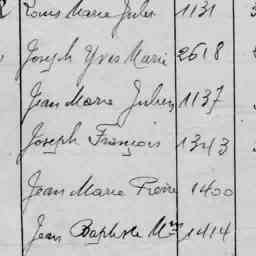 Louis Marie Jules 1131
Joseph Yves Marie 2618
Jean Marie Julien 1137
Joseph François 1343
Jean Marie Pierre 1400
Jean Baptiste Mie 1414